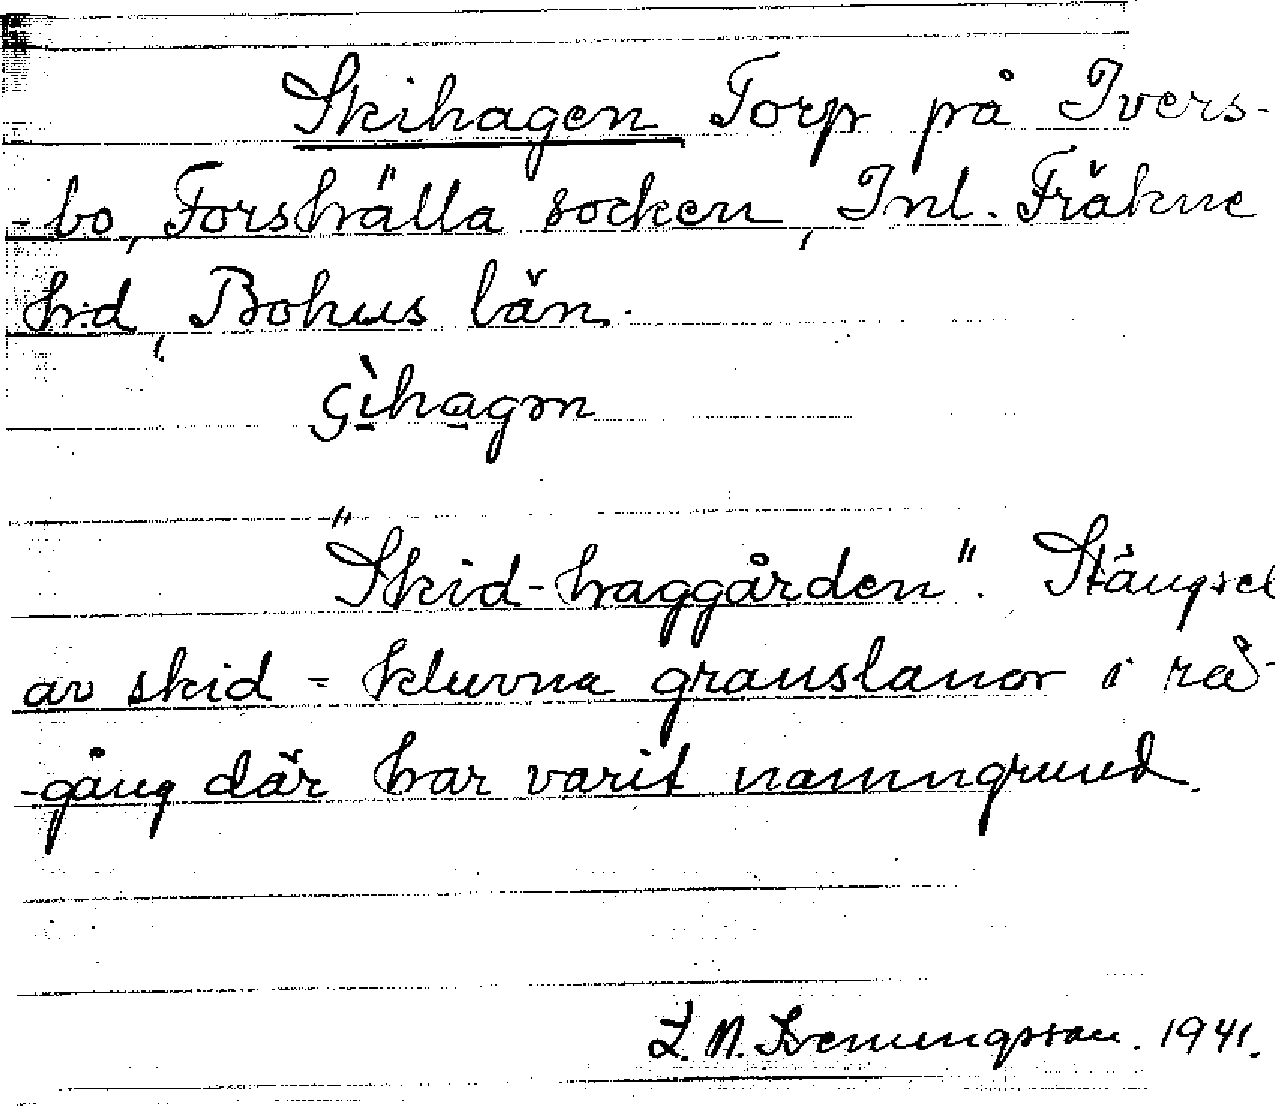 Skihagen Torp på Ivers-
-bo, Forshälla socken, Inl. Fräkne
h:d, Bohus län.
çìhagən
"Skid-haggården". Stängsel
av skid - kluvna granslanor i rå-
-gång där har varit namngrund.
1941.